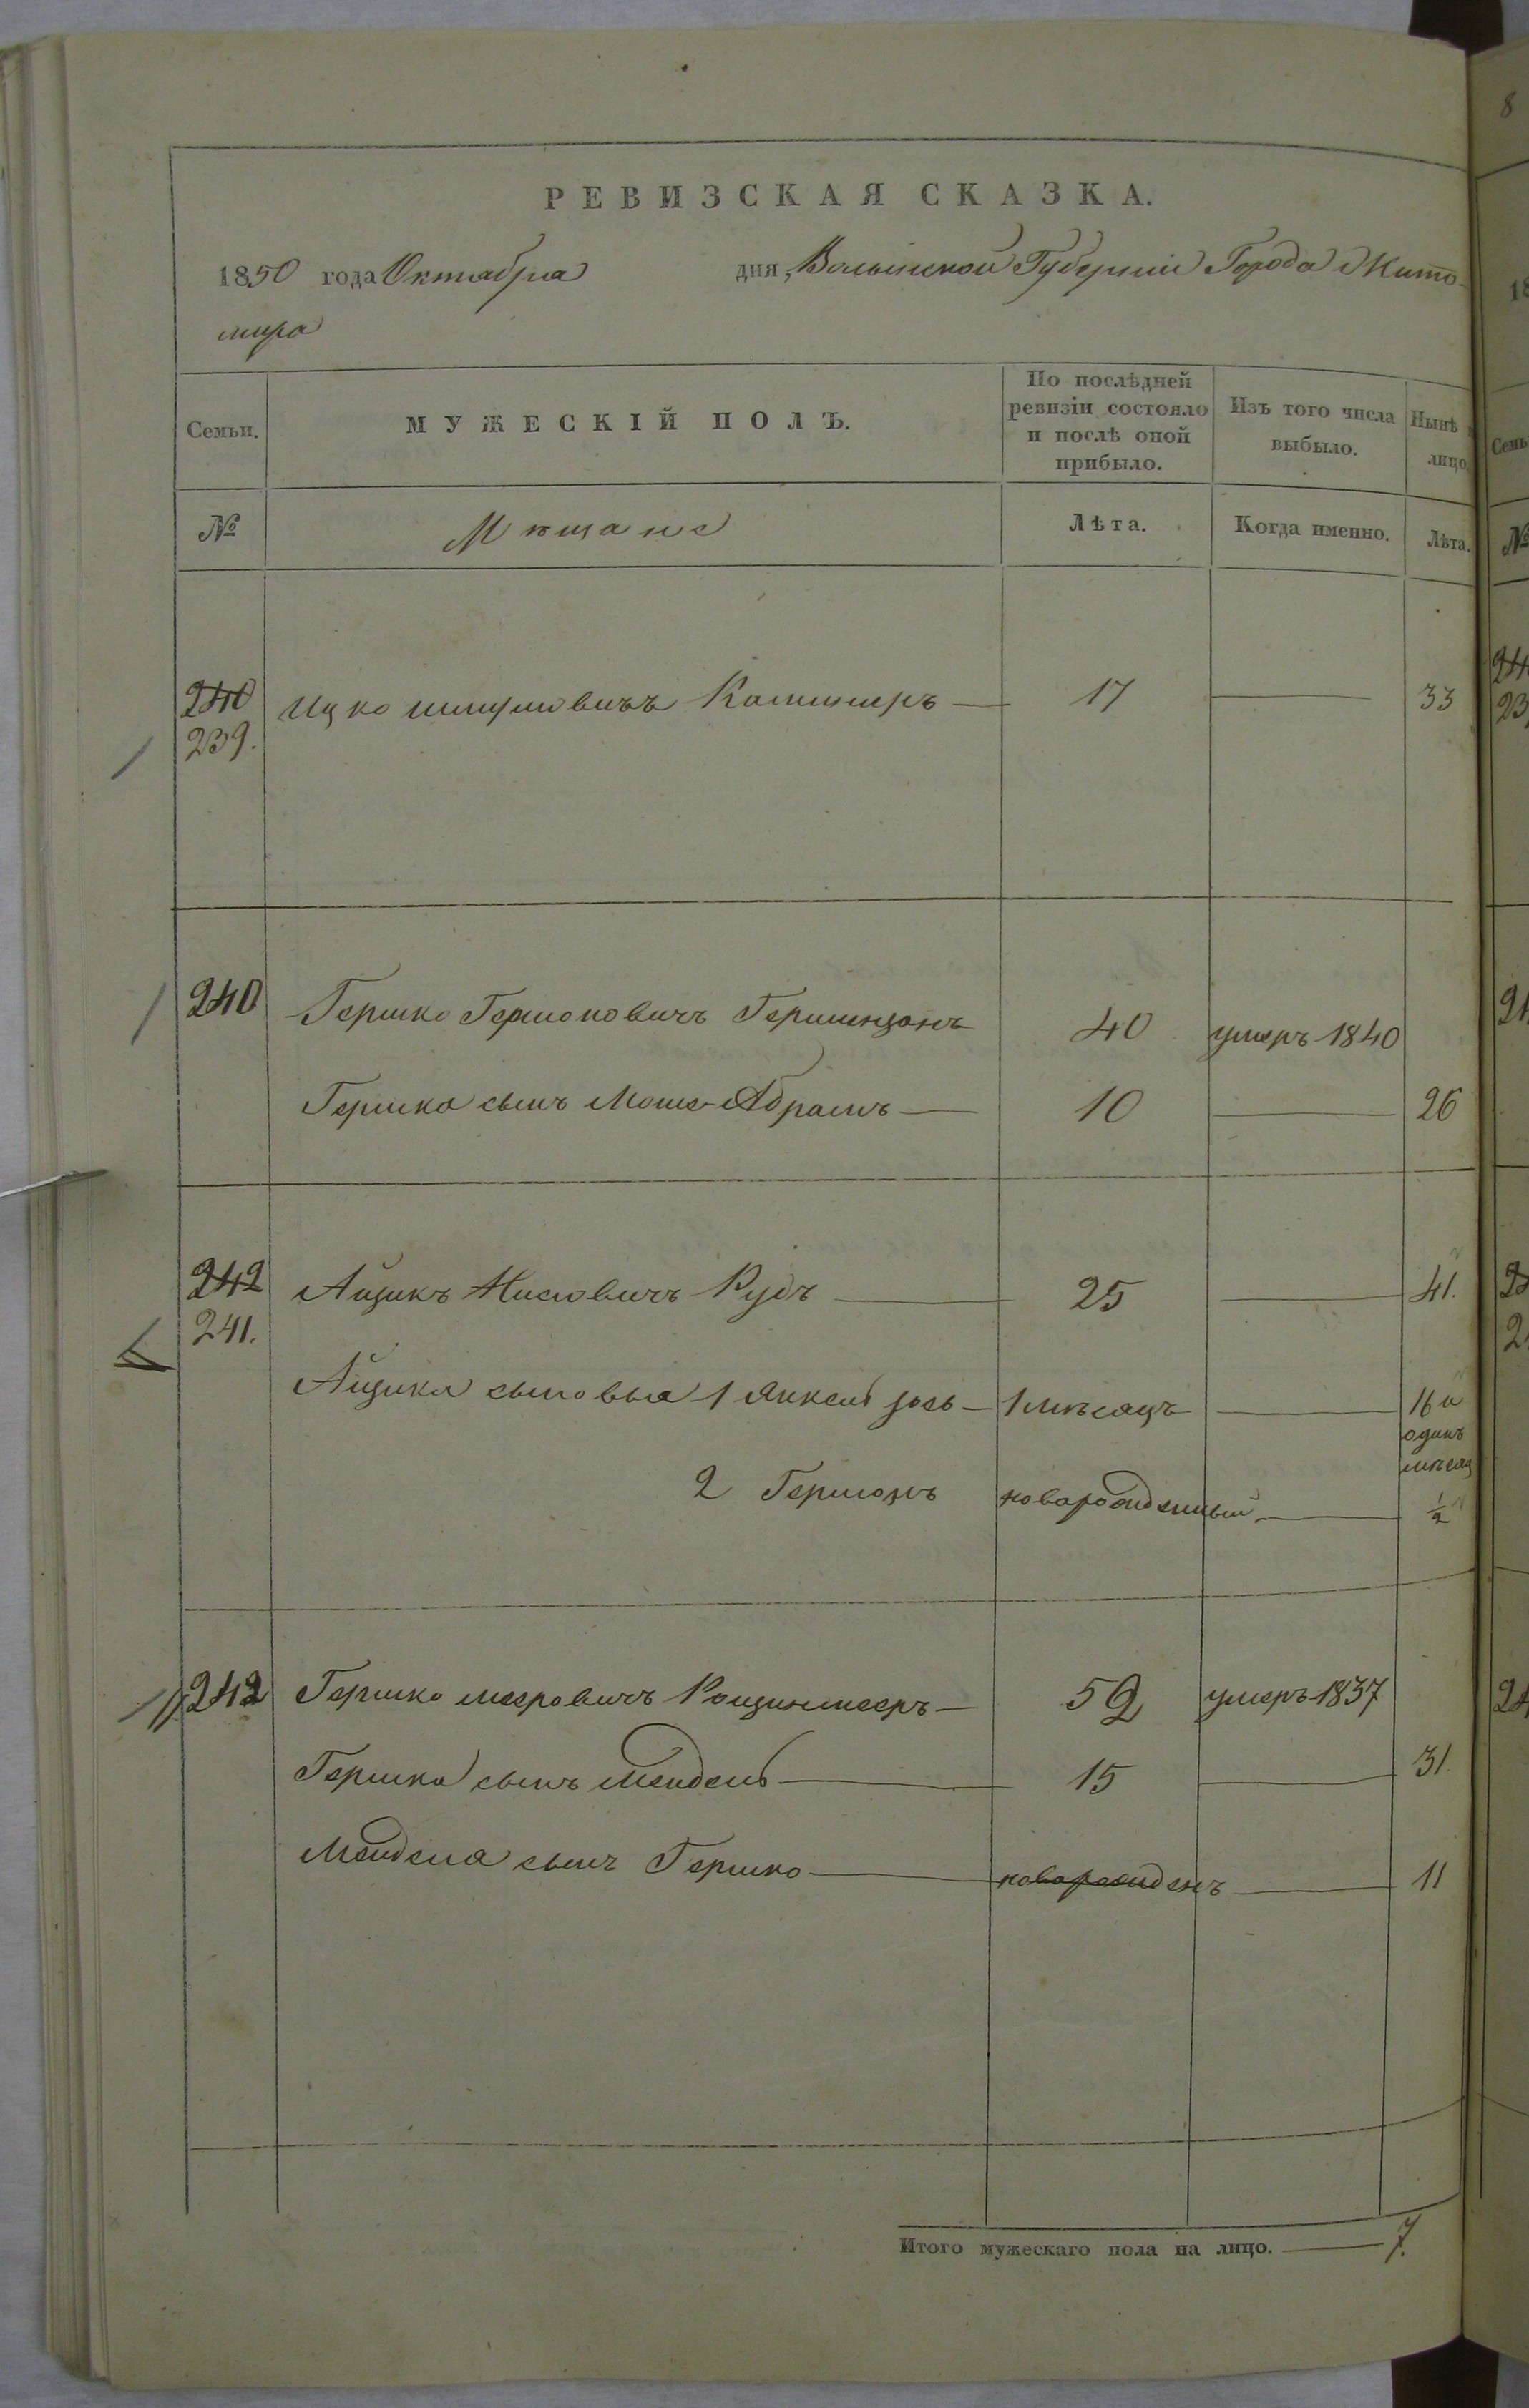 РЕВИЗСКАЯ СКАЗКА.
1850 года Октября дня, Волынской Губерніи Города Жито-
мира
Семьи. МУЖЕСКІЙ ПОЛЪ. По послѣдней ревизіи состояло и послѣ оной прибыло. Изъ того числа выбыло. Нынѣ лицо
№ Мѣщане Лѣта. Когда именно. Лѣта.
240 Ицко Шмуловичъ 17 33
239.
240 Гершко Гершоновичъ Гершензонъ 40 умеръ 1840
Гершка сынъ Моше-Абрамъ 10 26
242 Айзикъ Рудъ 25 41.
241.
Айзика сыновья 1 Янкель 1 мѣсяцъ 16 и
одинъ
мѣсяц
2 Гершонъ новорожденный 1/2
242 Гершко Мееровичъ 52 умеръ 1837
Гершка сынъ Мендель 15 31.
Менделя сынъ Гершко новорожденъ 11
Итого мужескаго пола на лицо. 7.
8
18
Семь
№